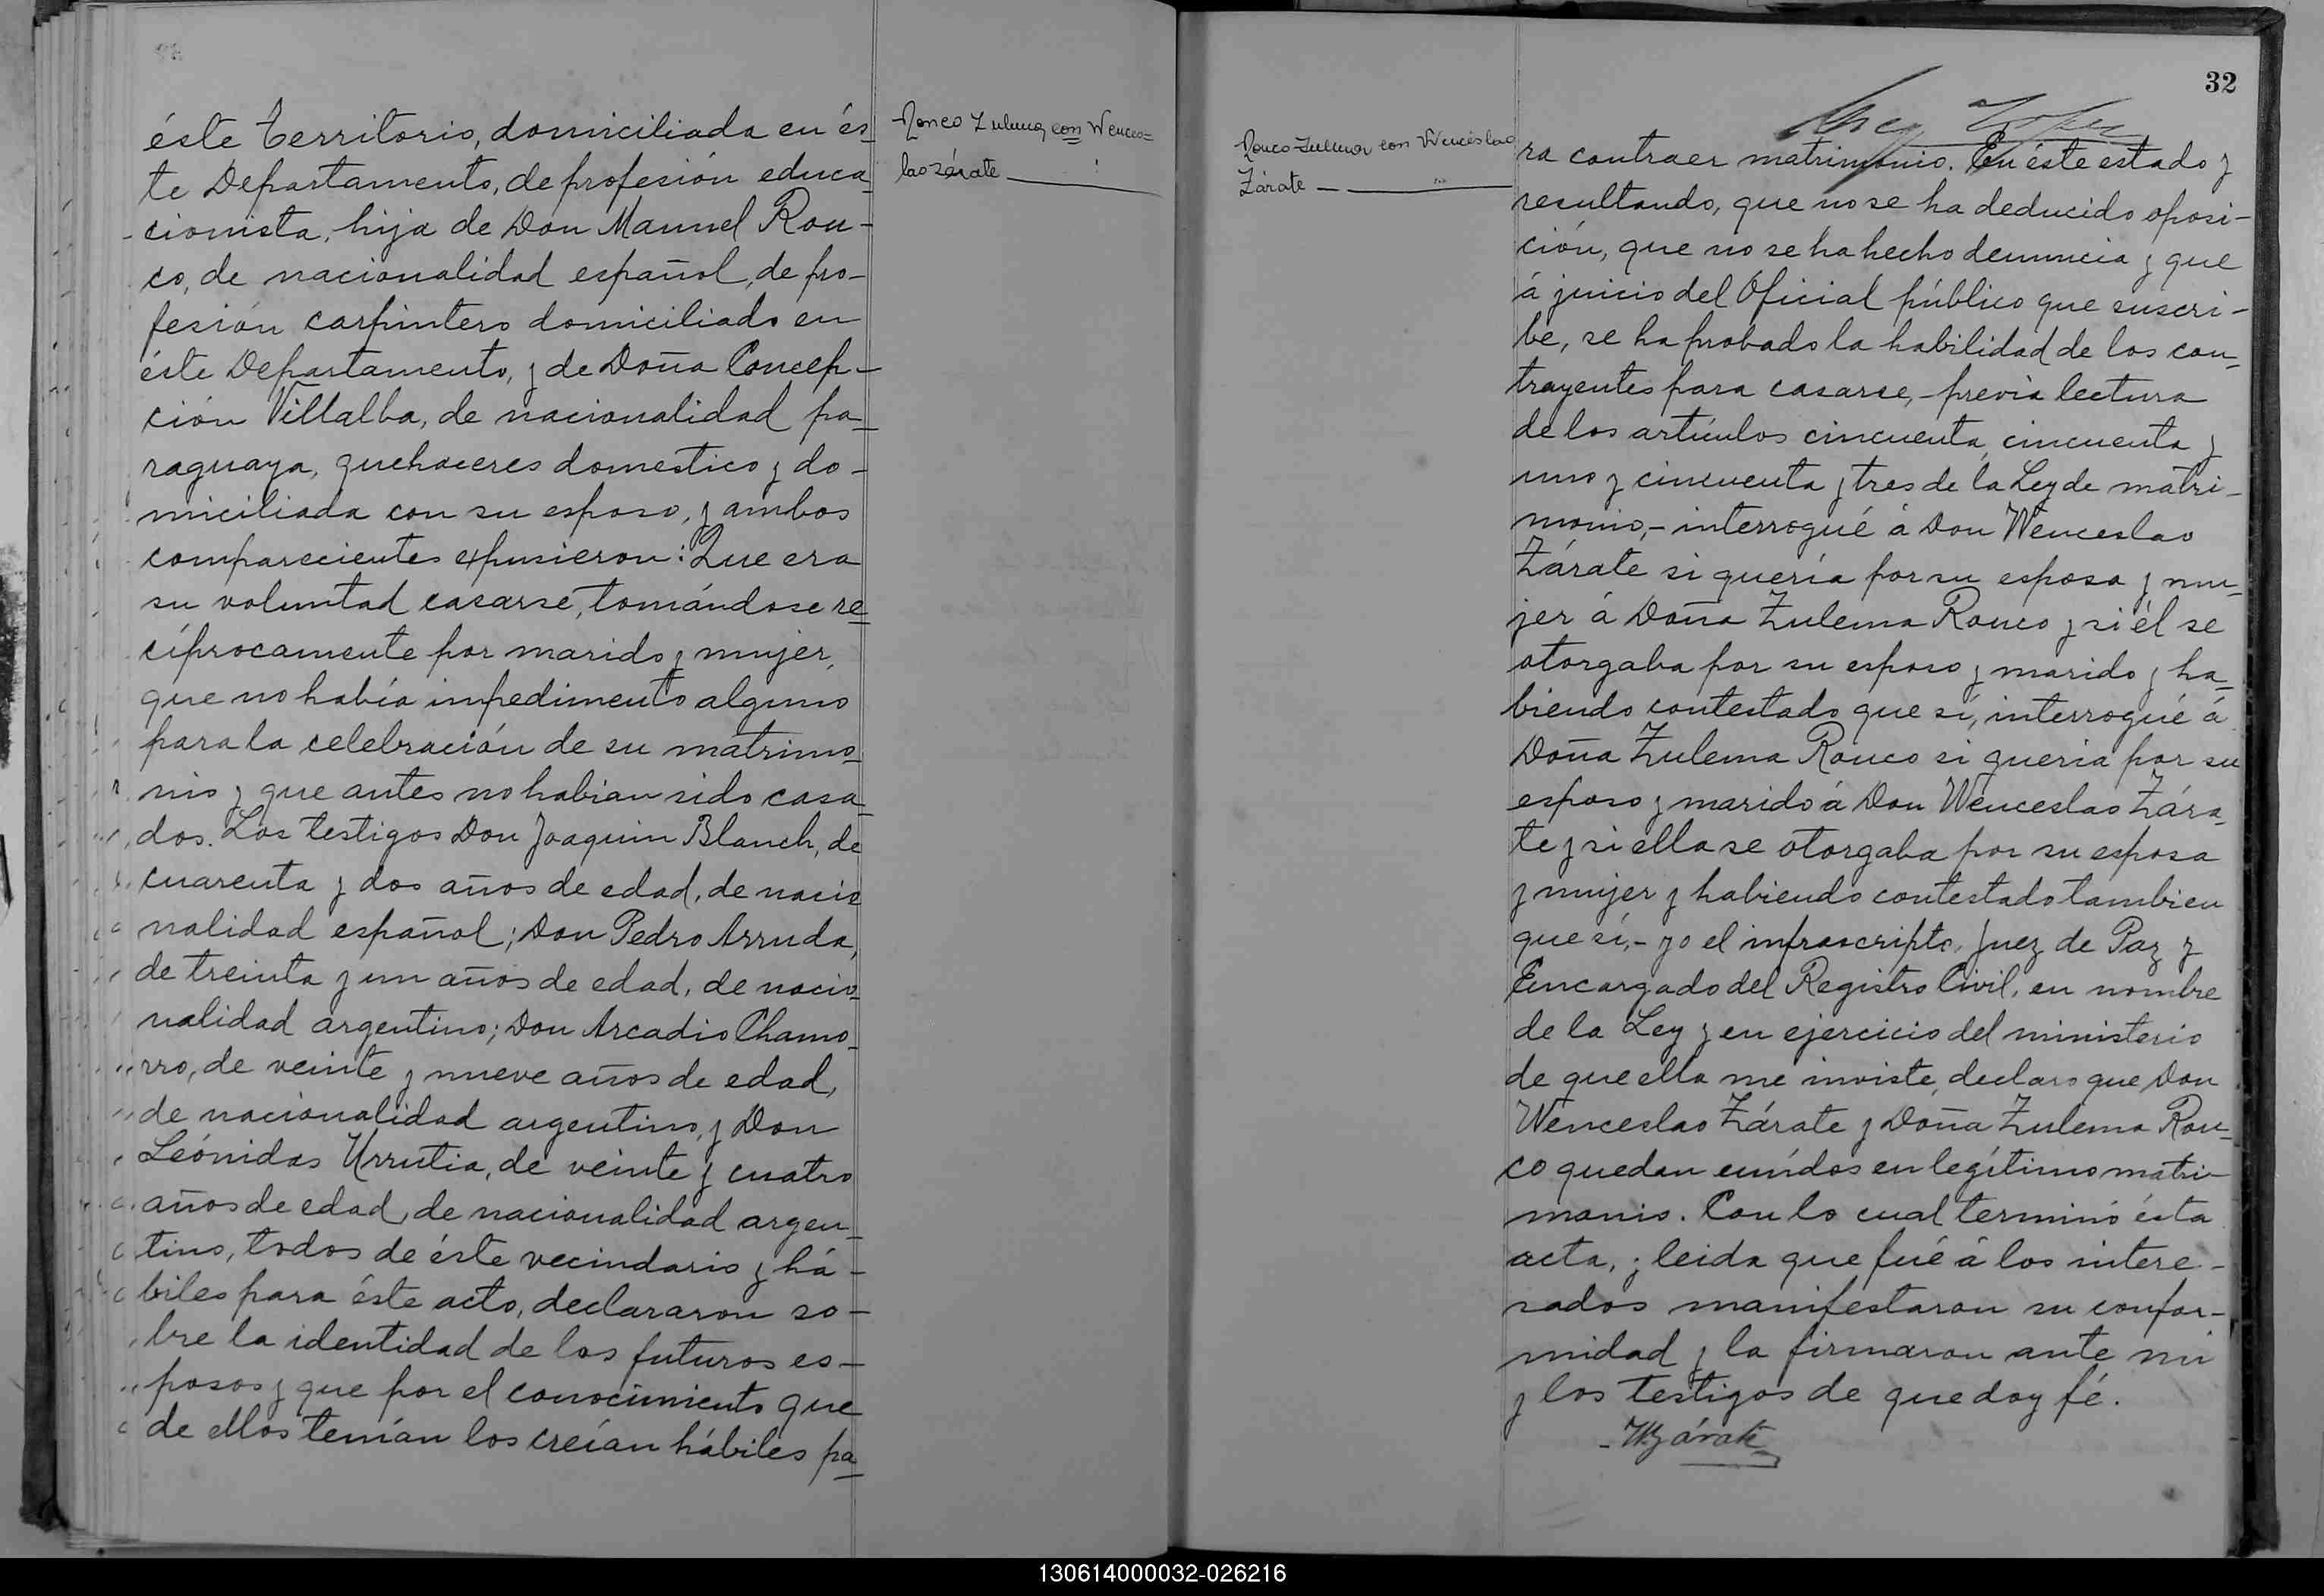 éste Territorio, domiciliada en és-
te Departamento, de profesión educa-
cionista, hija de Don Manuel Rou-
co, de nacionalidad español, de pro-
fesión carpintero domiciliado en
éste Departamento, y de Doña Concep-
ción Villalba, de nacionalidad pa-
raguaya, quehaceres domestico y do-
miciliada con su esposo, y ambos
comparecientes expusieron: Que era
su voluntad casarse, tomándose re-
cíprocamente por marido y mujer,
que no había impedimento alguno
para la celebración de su matrimo-
nio y que antes no habian sido casa-
dos. Los testigos Don Joaquin Blanch, de
cuarenta y dos años de edad, de nacio
nalidad español; Don Pedro Arruda,
de treinta y un años de edad, de nacio-
nalidad argentino; Don Arcadio Chamo-
rro, de veinte y nueve años de edad,
de nacionalidad argentino, y Don
Leónidas Urrutia, de veinte y cuatro
años de edad, de nacionalidad argen-
tino, todos de éste vecindario y há-
biles para éste acto, declararon so-
bre la identidad de los futuros es-
posos y que por el conocimiento que
de ellos tenían los creían hábiles pa-
Rouco Zulema con Wences-
lao Zárate
32
Rouco Zulema con Wenceslao
Zárate
ra contraer matrimonio. En éste estado y
resultando, que no se ha deducido oposi-
ción, que no se ha hecho denuncia y que
á juicio del Oficial público que suscri-
be, se ha probado la habilidad de los con-
trayentes para casarse, - previa lectura
de los artículos cincuenta, cincuenta y
uno y cincuenta y tres de la Ley de matri-
monio, - interrogué á Don Wenceslao
Zárate si quería por su esposa y mu-
jer á Doña Zulema Rouco y si él se
otorgaba por su esposo y marido y ha-
biendo contestado que sí, interrogué á
Doña Zulema Rouco si quería por su
esposo y marido á Don Wenceslao Zára-
te y si ella se otorgaba por su esposa
y mujer y habiendo contestado tambien
que sí, - yo el infrascripto, Juez de Paz y
Encargado del Registro Civil, en nombre
de la Ley y en ejercicio del ministerio
de que ella me inviste, declaro que Don
Wenceslao Zárate y Doña Zulema Rou-
co quedan unídos en legítimo matri-
monio. Con lo cual terminó ésta
acta, y leida que fué á los intere-
sados manifestaron su confor-
midad y la firmaron ante mi
y los testigos de que doy fé.
W Zárate
130614000032-026216